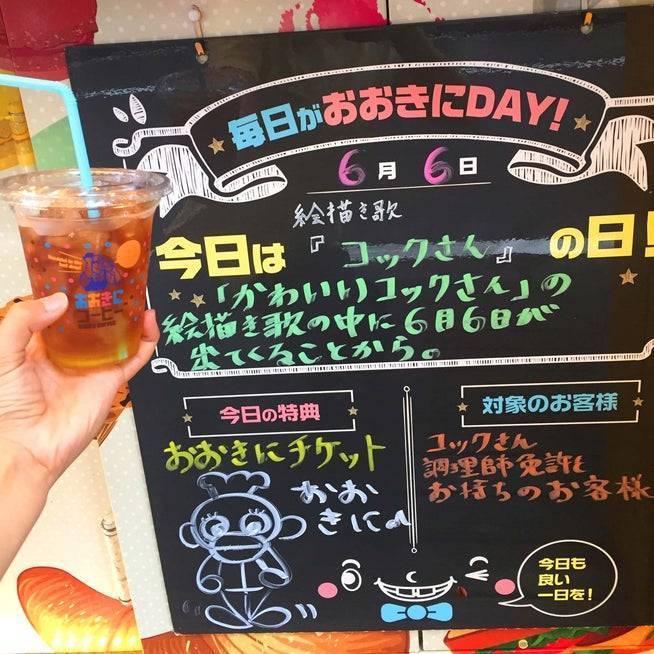 毎日がおおきにDAY!
6月6日
絵描き歌
今日は『コックさん』の日!
「かわいいコックさん」の
絵描き歌の中に6月6日が
出てくることから。
今日の特典
おおきにチケット
おお
きに♪
対象のお客様
コックさん
調理師免許を
お持ちのお客様
今日も
良い
一日を!
おおきに
コーヒー